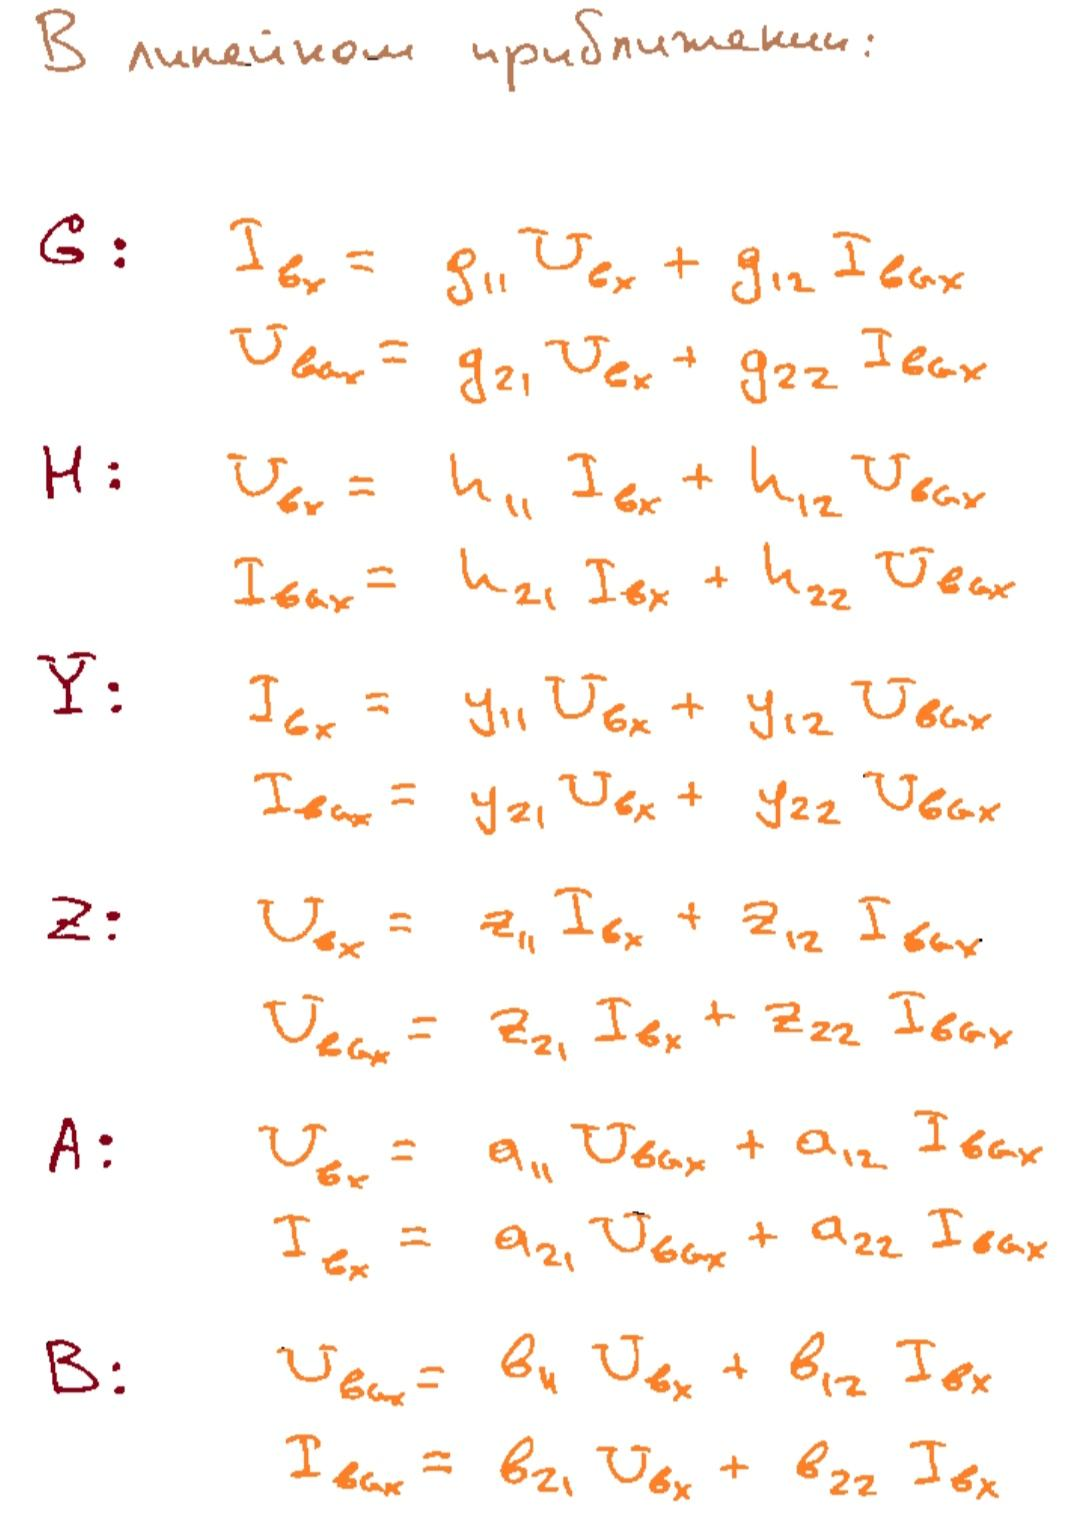 В линейном приближении:
G: Iвх = g11 Uвх + g12 Iвых
Uвых = g21 Uвх + g22 Iвых
H: Uвх = h11 Iвх + h12 Uвых
Iвых = h21 Iвх + h22 Uвых
Y: Iвх = y11 Uвх + y12 Uвых
Iвых = y21 Uвх + y22 Uвых
Z: Uвх = z11 Iвх + z12 Iвых
Uвых = z21 Iвх + z22 Iвых
A: Uвх = a11 Uвых + a12 Iвых
Iвх = a21 Uвых + a22 Iвых
B: Uвых = в11 Uвх + в12 Iвх
Iвых = в21 Uвх + в22 Iвх